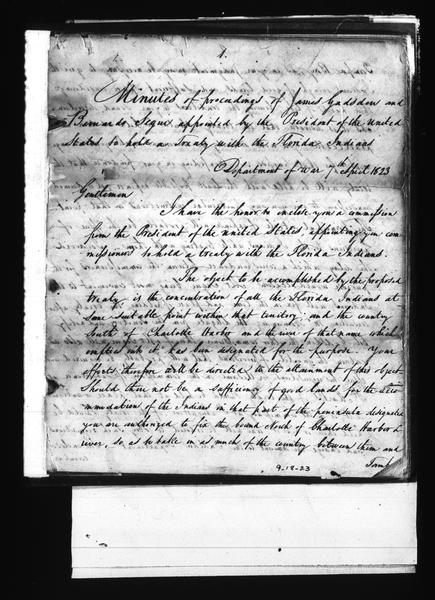 1.
Minutes of proceedings of James Gadsden and
Bernardo Segui appointed by the President of the United
States to hold a Treaty with the Florida Indians
Department of War 7th April 1823
Gentlemen
I have the honor to inclose you a commission
from the President of the United States appointing you com
missioners to hold a treaty with the Florida Indians.
The object to be accomplished by the proposed
treaty is the concentration of all the Florida Indians at
some suitable point within that territory, and the country
South of Charlotte Harbor and the river of that name which
empties into it has been designated for the purpose. Your
efforts therefore will be directed to the attainment of this object.
Should there not be a sufficiency of good lands for the acco
mmodations of the Indians in that part of the peninsula designated
you are authorized to fix the bound North of Charlotte Harbor &
river, so as to take in as much of the country between them and
Tamp
9-18-23